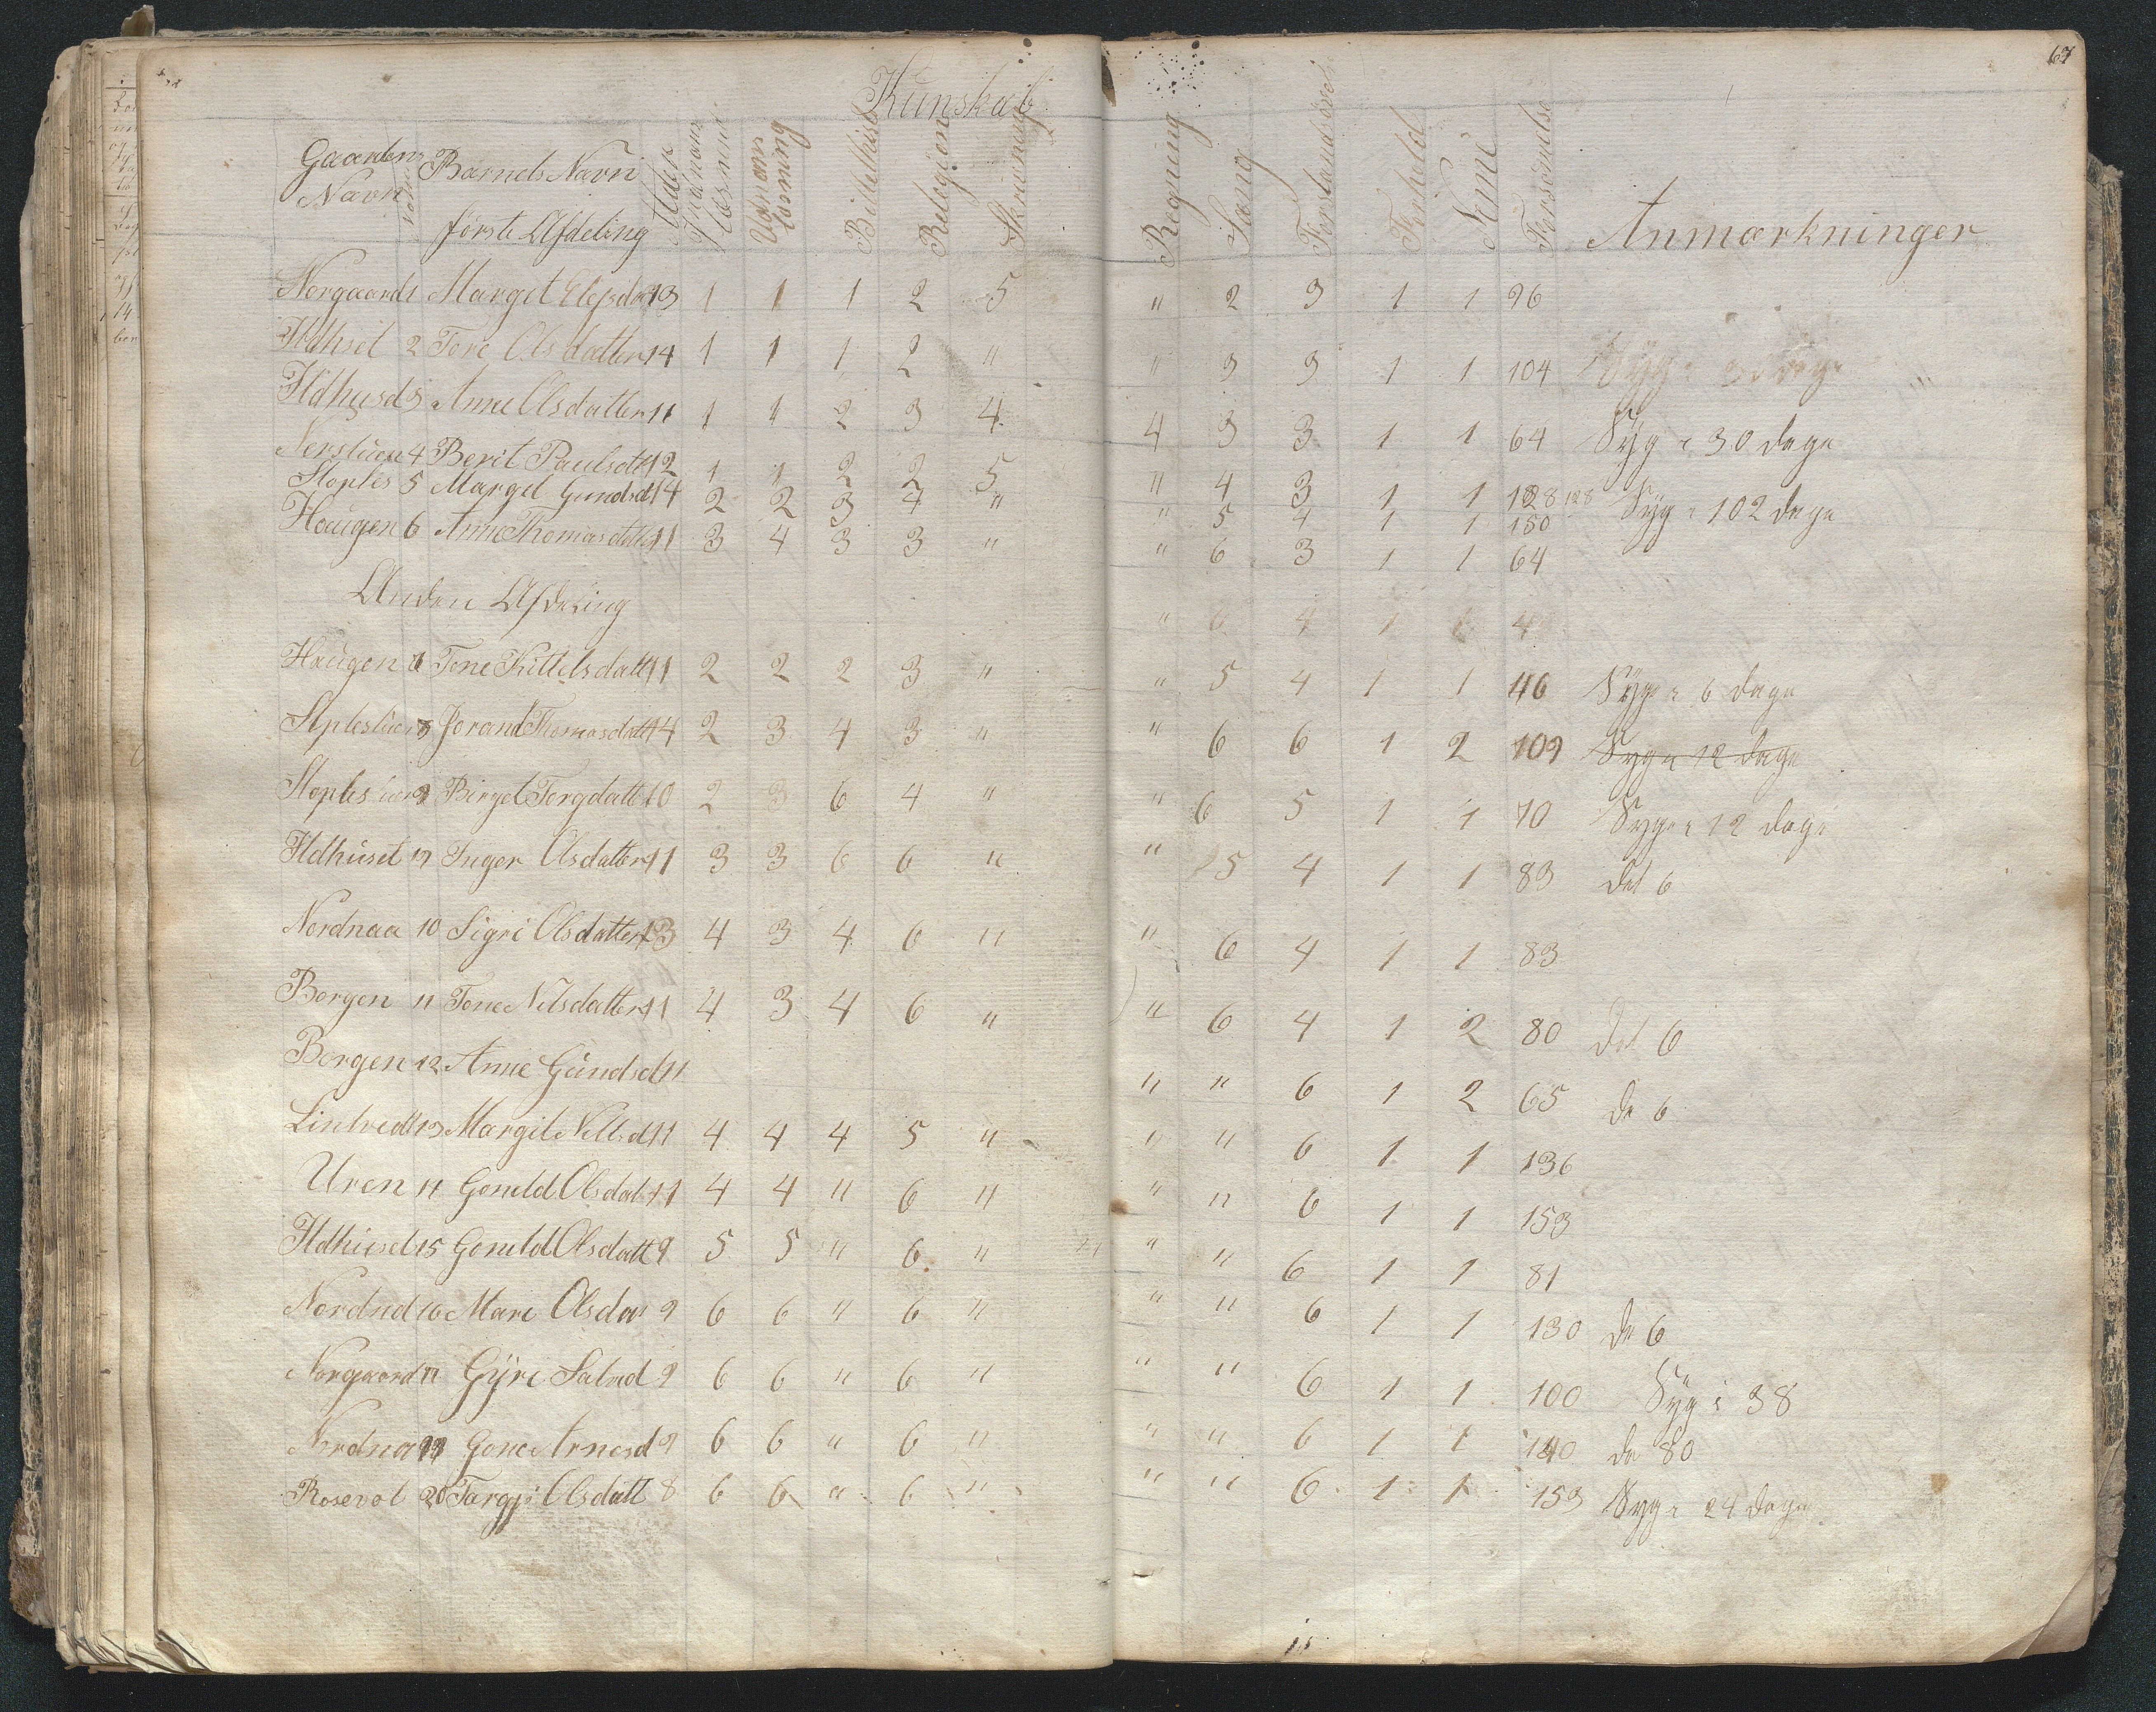 67
Kunskab
Gaardens Navn Nomer Barnets Navn Alder Indenad Læsning Udenad Læsning Bibelhistorie Religion Skrivning Regning Sang Forstandsøvelse Forhold Nemme Forsømmelse Anmærkninger
første Afdeling
Norgaard 1 Margit 13 1 1 1 2 5 " 2 3 1 1 96
Ildhuset 2 Tone Olsdatter 14 1 1 1 2 " " 3 3 1 1 104 Syg i dage
Ildhused 3 Anne Olsdatter 11 1 1 2 3 4 4 3 3 1 1 64 Syg i 30 dage
4 Berit Paulsdtt 12 1 1 2 2 5 " 4 3 1 1 128 128 Syg i 102 dage
Stoples 5 Margit Gundsd 14 2 2 3 4 " " 5 4 1 1 150
Haugen 6 Anne Thomasdatter 11 3 4 3 3 " " 6 3 1 1 64
Anden Afdeling " 6 4 1 4
Haugen Tone Kittelsdatt 11 2 2 2 3 " " 5 4 1 1 46 Syg i 6 dage
8 Jorand Thomasdatt 14 2 3 4 3 " " 6 6 1 2 109 Syg i 12 dage
Birget Torgdatt 10 2 3 6 4 " " 6 5 1 1 70 Syg i 12 dage
Ildhuset Inger Olsdatter 11 3 3 6 6 " " 5 4 1 1 83 det 6
Nordnaa 10 Sigri Olsdatter 13 4 3 4 6 " " 6 4 1 1 83
Borgen 11 Tone Nilsdatter 11 4 3 4 6 " " 6 4 1 2 80 det 6
Borgen 12 Anne Gundsd 11 " " 6 1 2 65 de 6
Lintvedt 13 Margit 11 4 4 4 5 " " " 6 1 1 136
Uren Gonild Olsdat 11 4 4 " 6 " " " 6 1 1 153
Ildhused 15 Gonild Olsdatt 9 5 5 " 6 " " " 6 1 1 81
16 Mari Olsdat 9 6 6 " 6 " " " 6 1 1 130 de 6
Norgaard 17 Gÿri 9 6 6 " 6 " " " 6 1 1 100 Syg i 38
Nordnaa Gone Arnesd 9 6 6 " 6 " " " 6 1 1 140 de 80
Rosevol 20 Targji Olsdatt 8 6 6 " 6 " " " 6 1 1 153 Syg i 24 dage